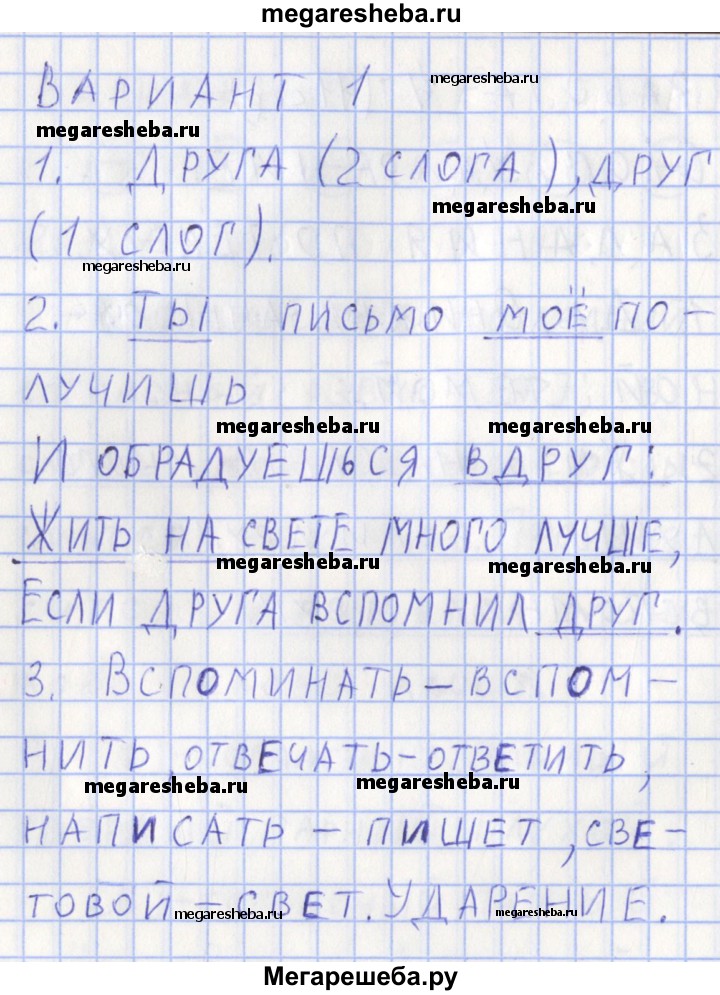 megaresheba.ru
ВАРИАНТ 1
megaresheba.ru
megaresheba.ru
1. ДРУГА (2 СЛОГА), ДРУГ
megaresheba.ru
(1 СЛОГ).
megaresheba.ru
2. ТЫ ПИСЬМО МОЁ ПО-
ЛУЧИШЬ
megaresheba.ru megaresheba.ru
И ОБРАДУЕШЬСЯ ВДРУГ:
ЖИТЬ НА СВЕТЕ МНОГО ЛУЧШЕ,
megaresheba.ru megaresheba.ru
ЕСЛИ ДРУГА ВСПОМНИЛ ДРУГ.
3. ВСПОМИНАТЬ – ВСПОМ-
НИТЬ, ОТВЕЧАТЬ – ОТВЕТИТЬ,
megaresheba.ru megaresheba.ru
НАПИСАТЬ – ПИШЕТ, СВЕ-
ТОВОЙ – СВЕТ. УДАРЕНИЕ.
megaresheba.ru megaresheba.ru
Мегарешеба.ру